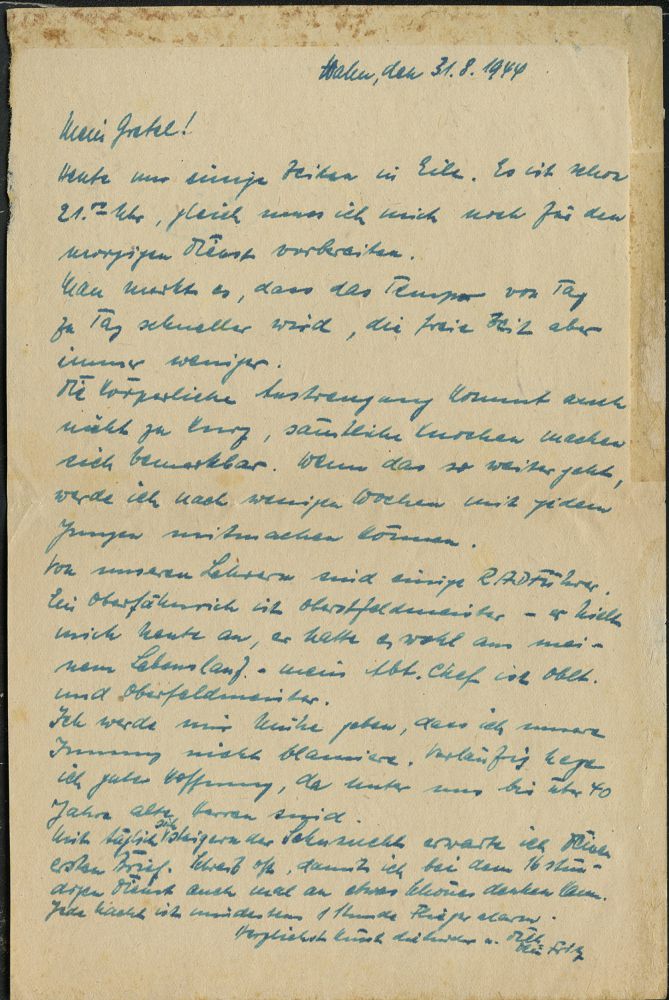 Hahn, den 31.8.1944
Mein Gretel!
Heute nur einige Zeilen in Eile. Es ist schon
21.00 Uhr, gleich muss ich mich noch für den
morgigen Dienst vorbereiten.
Man merkt es, dass das Tempo von Tag
zu Tag schneller wird, die freie Zeit aber
immer weniger.
Die körperliche Anstrengung kommt auch
nicht zu kurz, sämtliche Knochen machen
sich bemerkbar. Wenn das so weiter geht,
werde ich nach wenigen Wochen mit jedem
Jungen mitmachen können.
Von unseren Lehrern sind einige RADFührer.
Ein Oberfähnrich ist Oberstfeldmeister - er hielt
mich heute an, er hatte es wohl aus mei-
nem Lebenslauf. - mein Abt. Chef ist Oblt.
und Oberfeldmeister.
Ich werde mir Mühe geben, dass ich unsere
Innung nicht blamiere. Vorläufig hege
ich gute Hoffnung, da unter uns bis über 40
Jahre alte Herren sind.
Mit täglich sich steigernder Sehnsucht erwarte ich Deinen
ersten Brief. Schreib oft, damit ich bei dem 16 stün-
digen Dienst auch mal an etwas Schönes denken kann.
Jede Nacht ist mindestens 1 Stunde Fliegeralarm.
Herzlichst küsst die Kinder u. Dich
Dein Fritz